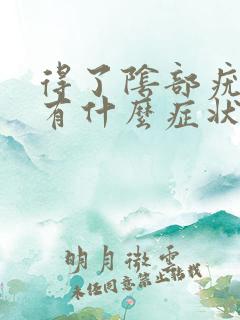 得了陰部疣
有什麼症狀
明月微雲
未経同意禁止轉載